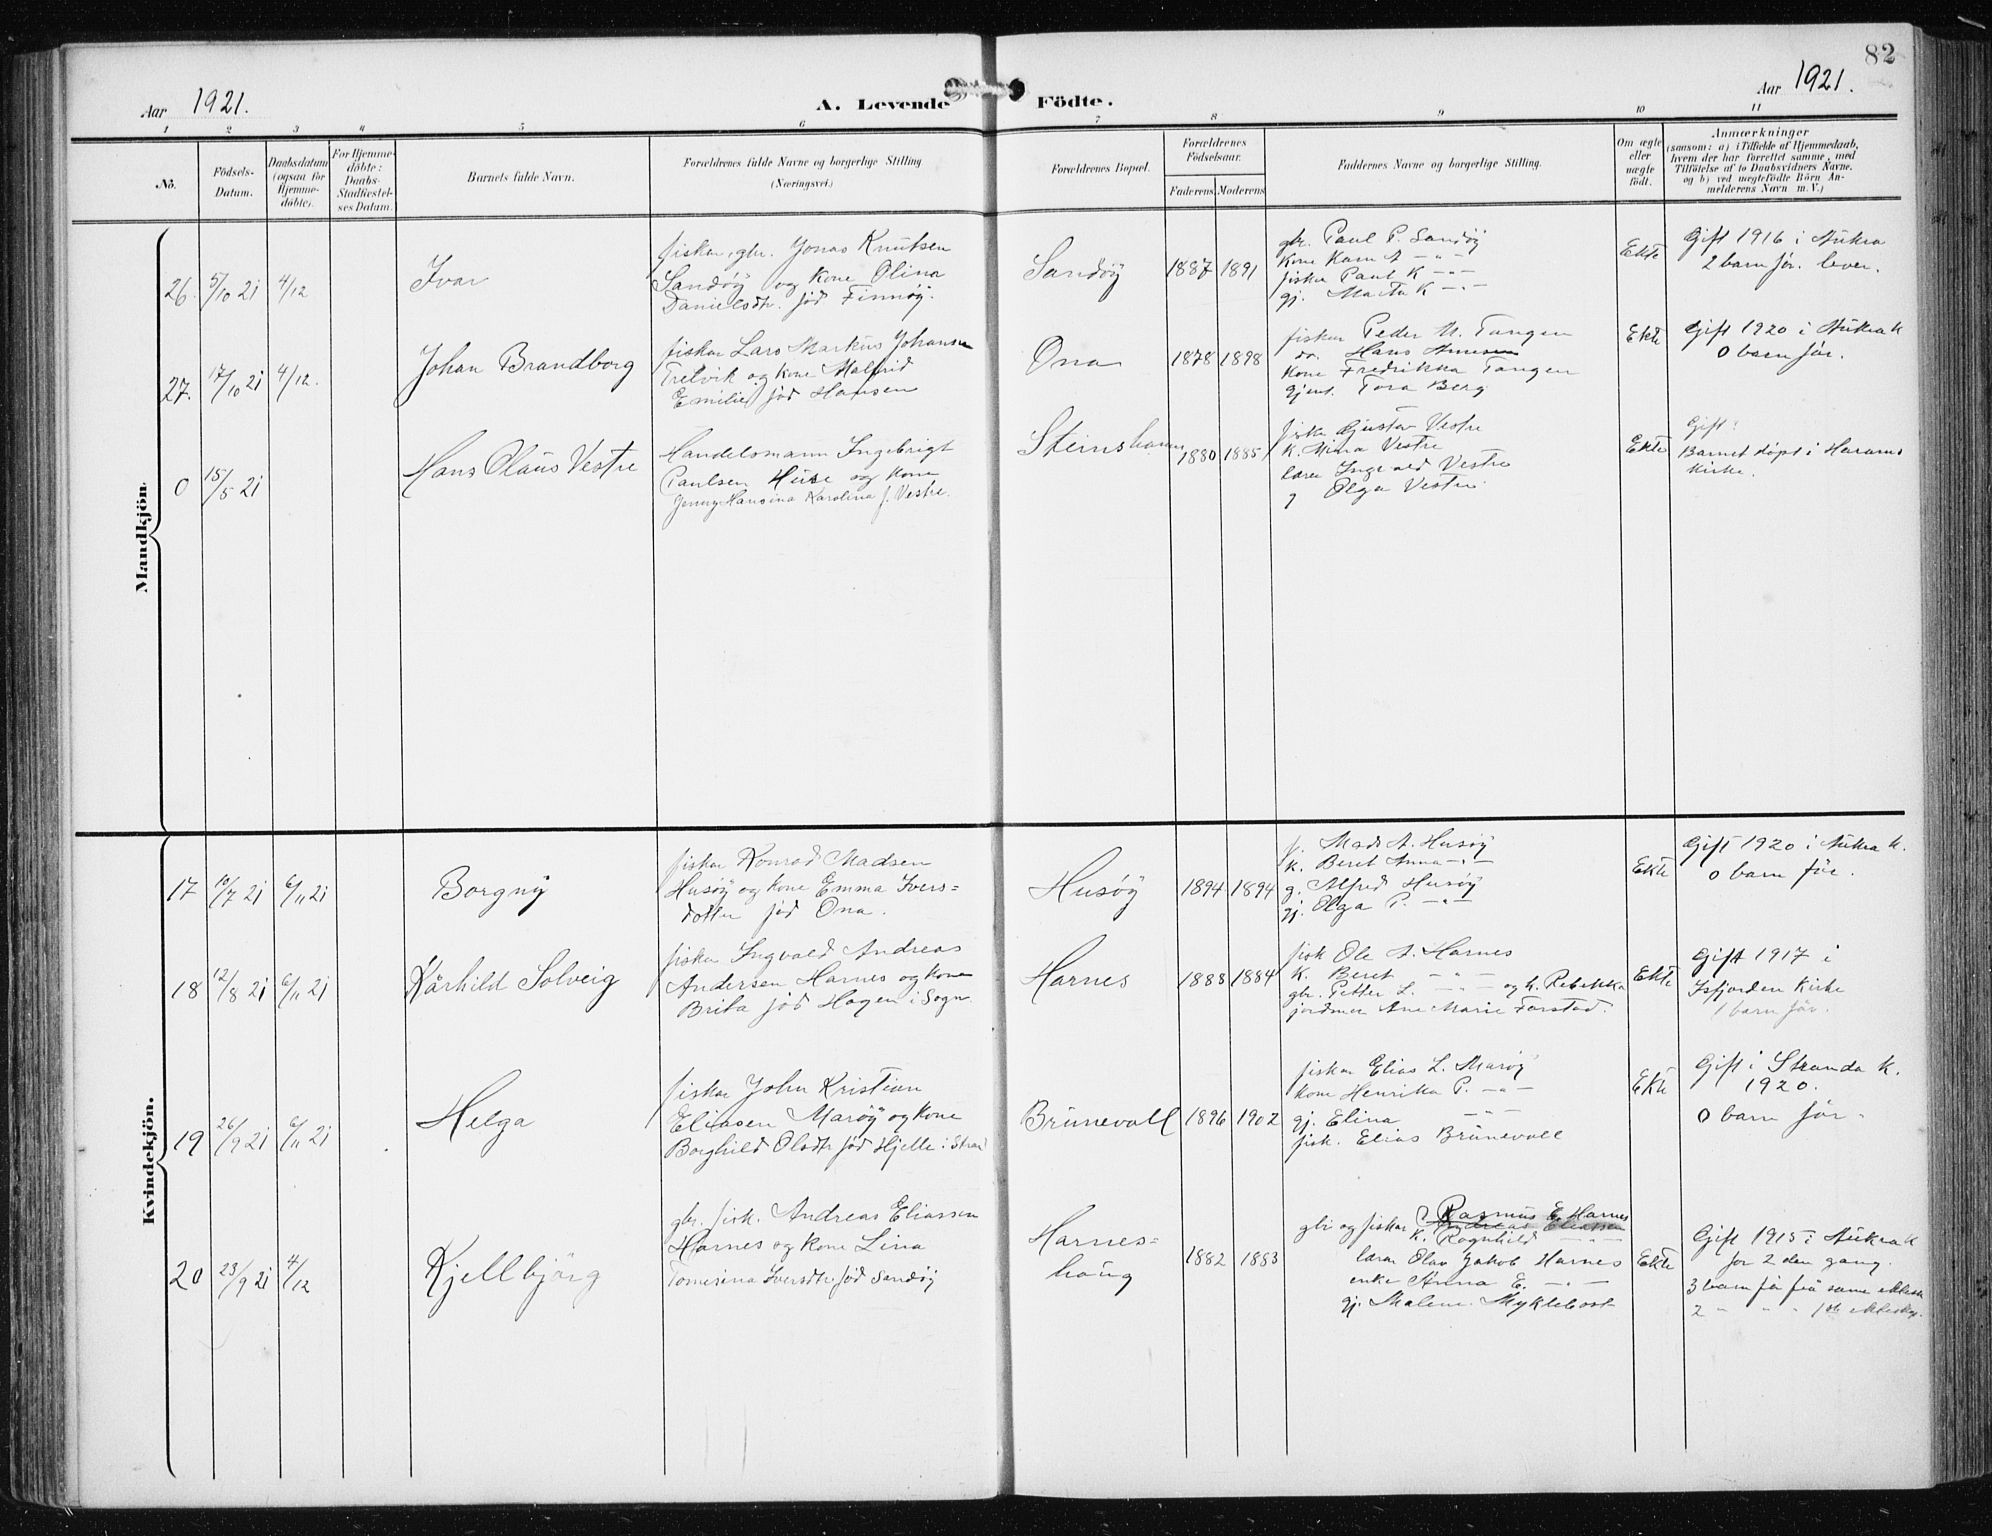 82
Aar 1921.
A. Levende Födte.
Aar 1921.
1 2 3 4 5 6 7 8 9 10 11
No.
Födsels-Datum.
Daabsdatum (ogsaa for Hjemme-döbte).
For Hjemme-döbte: Daabs-Stadfæstel-ses Datum.
Barnets fulde Navn.
Forældrenes fulde Navne og borgerlige Stilling
(Næringsvei.)
Forældrenes Bopæl.
Forældrenes Födselsaar.
Faderens. Moderens
Faddernes Navne og borgerlige Stilling.
Om ægte eller uægte födt.
Anmærkninger
(saasom: a) i Tilfælde af Hjemmedaab,
hvem der har forrettet samme, med
Tilföielse af to Daabsvidners Navne,
og b) ved uægtefödte Börn An-
melderens Navn m. V.)
Mandkjön.
26. 5/10 21 4/12 Ivar
fisker, gbr. Jonas Knutsen
Sandöy og kone Olina
Danielsdtr. föd Finnöy.
Sandöy 1887 1891
gbr. Paul P. Sandöy
kone Karn A - " -
fisker Paul K - " -
gj. Marta K - " -
Ekte
Gift 1916 i Aukra
2 barn før. lever.
27. 17/10 21 4/12. Johan Brandborg
fisker Lars Markus Johansen
Tretvik og kone Malfrid
Emilie föd Hansen
Ona 1878 1898
fisker Peder M. Tangen
do. Hans
kone Fredrikka Tangen
gjent. Tora Berg
Ekte
Gift 1920 i Aukra k
0 barn før.
0 15/5 21 Hans Olaus Vestre
Handelsmann Ingebrigt
Paulsen Huse og kone
Jenny Hansina Karolina f. Vestre.
Steinshamn 1880 1885
fisker Gustav Vestre
k. Mina Vestre
lærer Ingvald Vestre
g Olga Vestre.
Ekte
Gift:
Barnet döpt i Harams
Kirke.
Kvindekjön.
17 10/7 21 6/11 21 Borgny
fisker Konrad Madsen
Husöy og kone Emma Ivers=
dotter föd Ona.
Husöy 1894 1894
f. Mads A. Husöy
k. Beret Anna - " -
g. Alfred Husöy
gj. Olga P. - " -
Ekte
Gift 1920 i Aukra k.
0 barn før.
18 12/8 21 6/11 21 Kårhild Solveig
fisker Ingvald Andreas
Andersen Harnes og kone
Brita föd Hagen i Sogn
Harnes 1888 1884
fisk Ole A. Harnes
k. Beret - " -
gbr. Petter L. - " - og k. Rebekka
jordmor Ane Marie Farstad.
Ekte
Gift 1917 i
Isfjorden Kirke
1 barn før.
19 26/9 21 6/11 21 Helga
fisker John Kristian
Eliasen Maröy og kone
Borghild Olsdtr föd Hjelle i Stran
Brunevoll 1896 1902
fisker Elias L. Maröy
kone Henrika P. - " -
gj. Elina - " -
fisk. Elias Brunevoll
Ekte
Gift i Stranda k.
1920.
0 barn før.
20 23/9 21 4/12 Kjellbjörg
gbr. fisk. Andreas Eliassen
Harnes og kone Lina
Tomesina Iversdtr. föd Sandöy
Harnes=
haug
1882 1883
gbr og fisker Rasmus E. Harnes
k. Ragnhild - " -
lærer Olav Jakob Harnes
enke Anna E. - " -
gj. Malene Myklebost
Ekte
Gift 1915 i Aukra k
for 2 den gang.
3 barn før frå same ekteskap
2 " " " 1ste ekteskap.